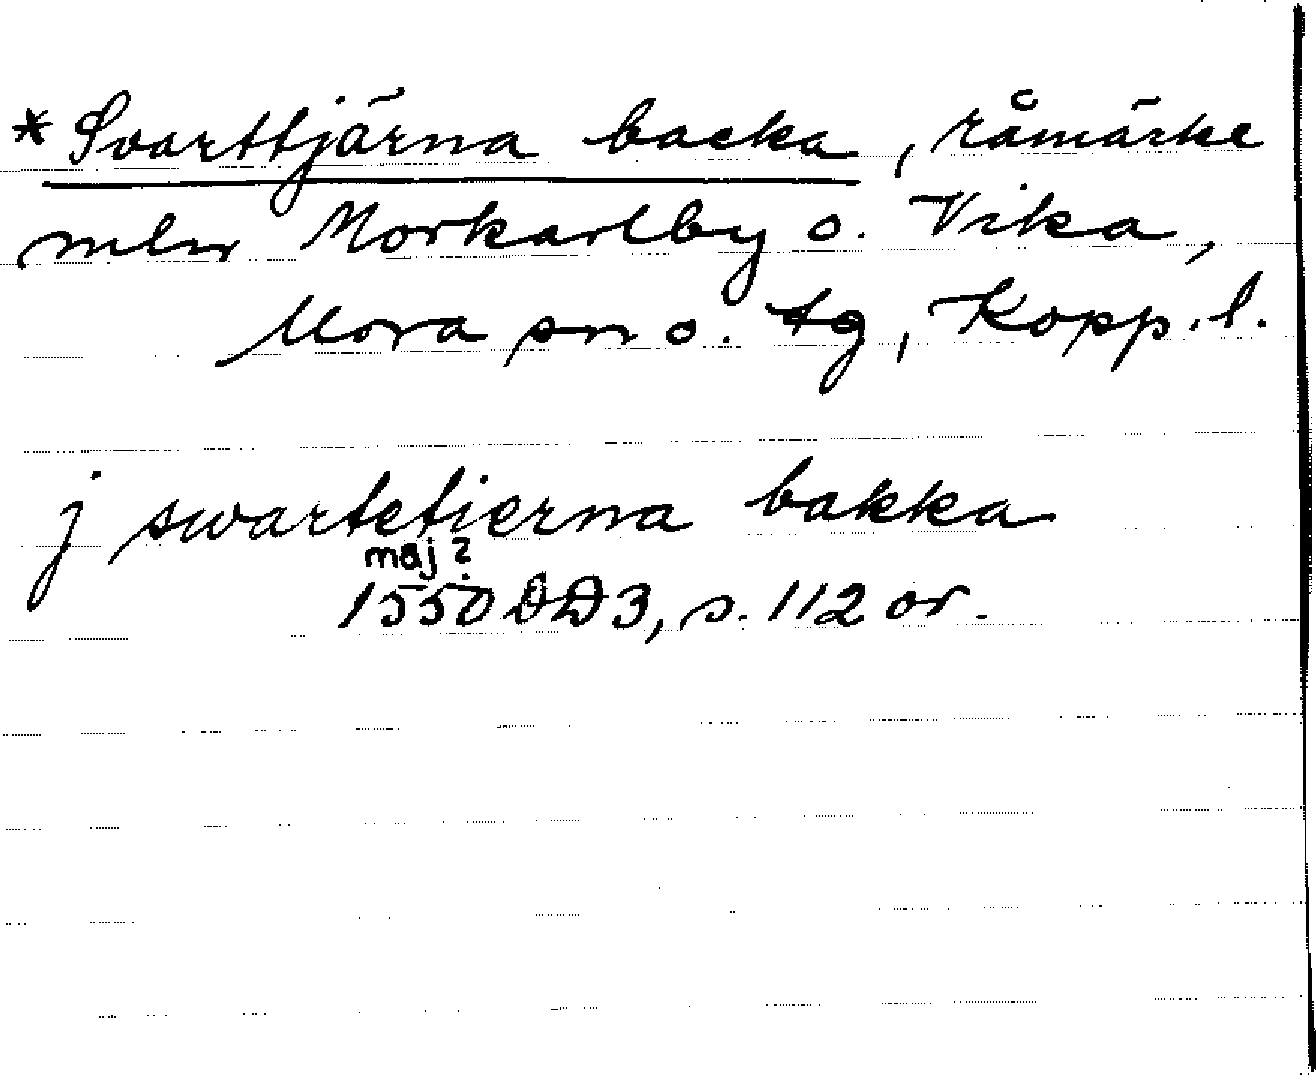 * Svarttjärna backa, råmärke
mln Morkarlby o. Vika,
Mora sn o. tg, Kopp. l.
j swartetierna bakka
maj?
1550 DD3, s. 112 or.